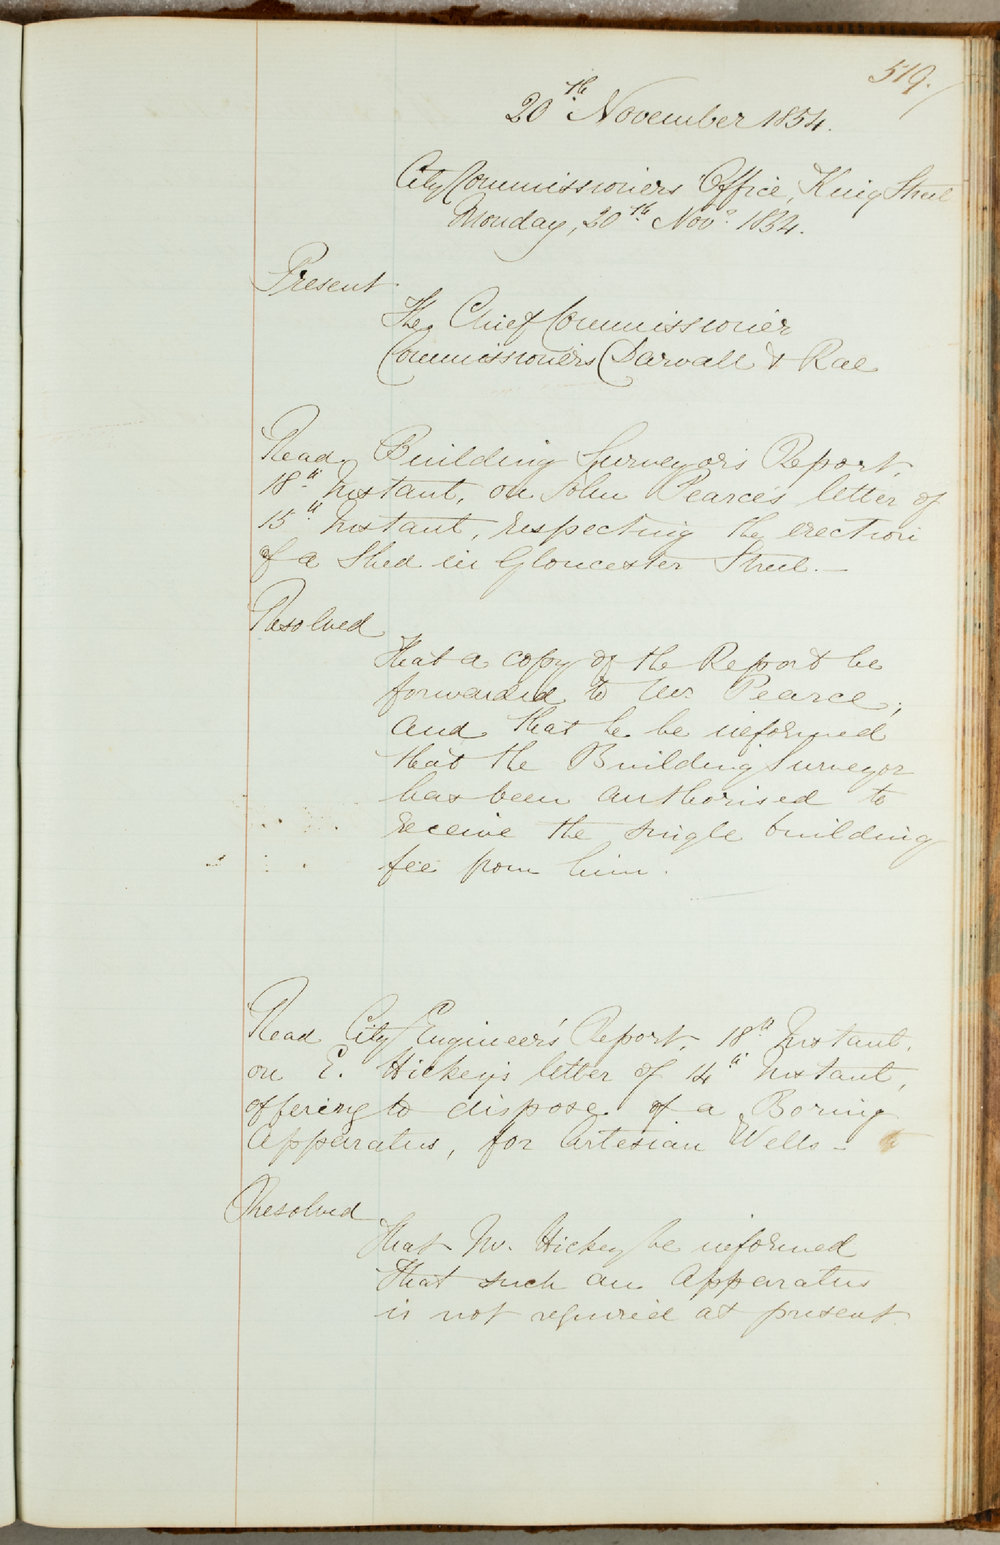 519.
20th November 1854.
City Commissioners Office, King Street
Monday, 20th Novr. 1854.
Present
The Chief Commissioner
Commissioners Darvall & Rae
Read Building Surveyor's Report,
18th Instant, on John Pearce's letter of
15th Instant, respecting the erection
of a Shed in Gloucester Street. —
Resolved
That a copy of the Report be
forwarded to Mr Pearce,
and that he be informed
that the Building Surveyor
has been authorised to
receive the single building
fee from him.
Read City Engineer's Report, 18th Instant,
on E. Hickey's letter of 14th Instant,
offering to dispose of a Boring
Apparatus, for Artesian Wells —
Resolved
That Mr. Hickey be informed
that such an Apparatus
is not required at present